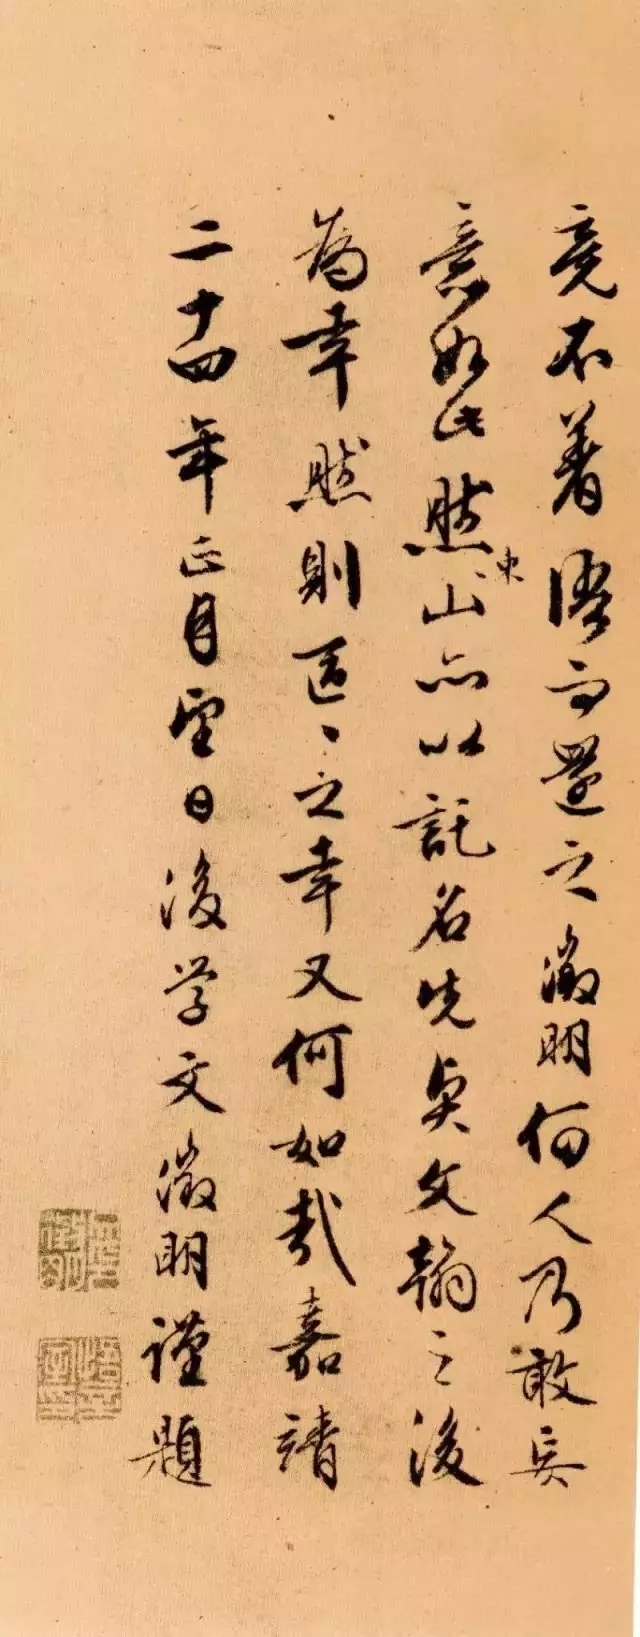 竟不著語而還之徵明何人乃敢吴
意如此然東山亦以託名先賢文翰之後
為幸然則區〻之幸又何如哉嘉靖
二十四年正月望日後学文徵明謹題